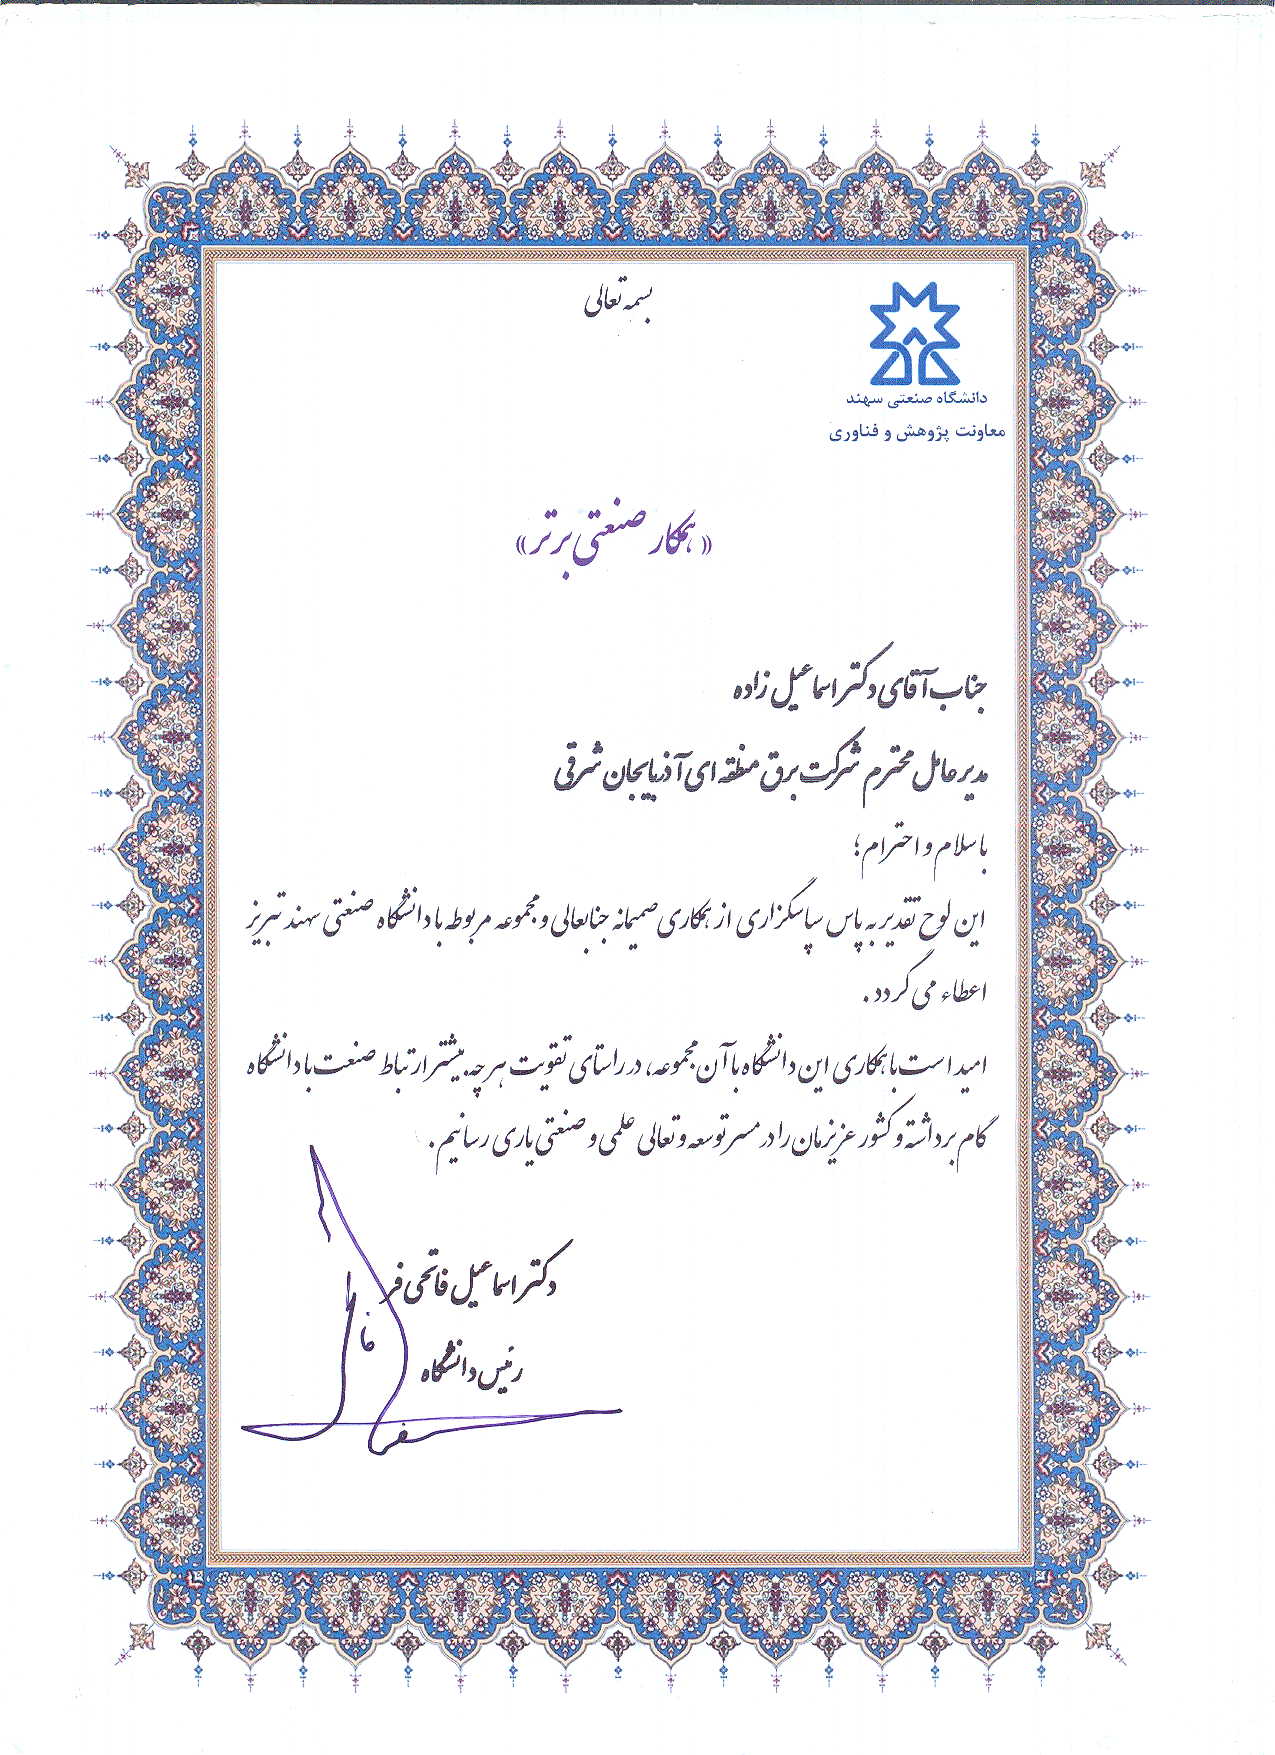 بسمه تعالی
دانشگاه صنعتی سهند
معاونت پژوهش و فناوری
«همکار صنعتی برتر»
جناب آقای دکتر اسماعیل زاده
مدیر عامل محترم شرکت برق منطقه ای آذربایجان شرقی
با سلام و احترام؛
این لوح تقدیر به پاس سپاسگزاری از همکاری صمیمانه جنابعالی و مجموعه مربوطه با دانشگاه صنعتی سهند تبریز
اعطاء می گردد.
امید است با همکاری این دانشگاه با آن مجموعه، در راستای تقویت هر چه بیشتر ارتباط صنعت با دانشگاه
گام برداشته و کشور عزیزمان را در مسیر توسعه و تعالی علمی و صنعتی یاری رسانیم.
دکتر اسماعیل فاتحی فر
رئیس دانشگاه